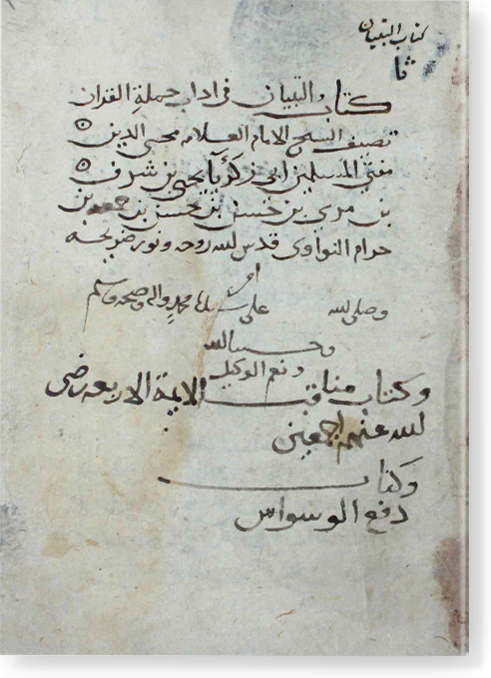 كتاب التبيان
كتاب التبيان في اداب حملة القران
تصنيف الشيخ الامام العلامه محيي الدين
مفتي المسلمين ابي زكريا يحيى بن شرف
بن مري بن حسن بن حسين بن محمد بن
حزام النواوي قدس الله روحه ونور ضريحه
امين
وصلى الله على سيدنا محمد واله وصحبه وسلم
وحسبنا الله
ونعم الوكيل
وكتاب مناقب الايمة الاربعه رضي
الله عنهم اجمعين
وكتاب
دفع الوسواس